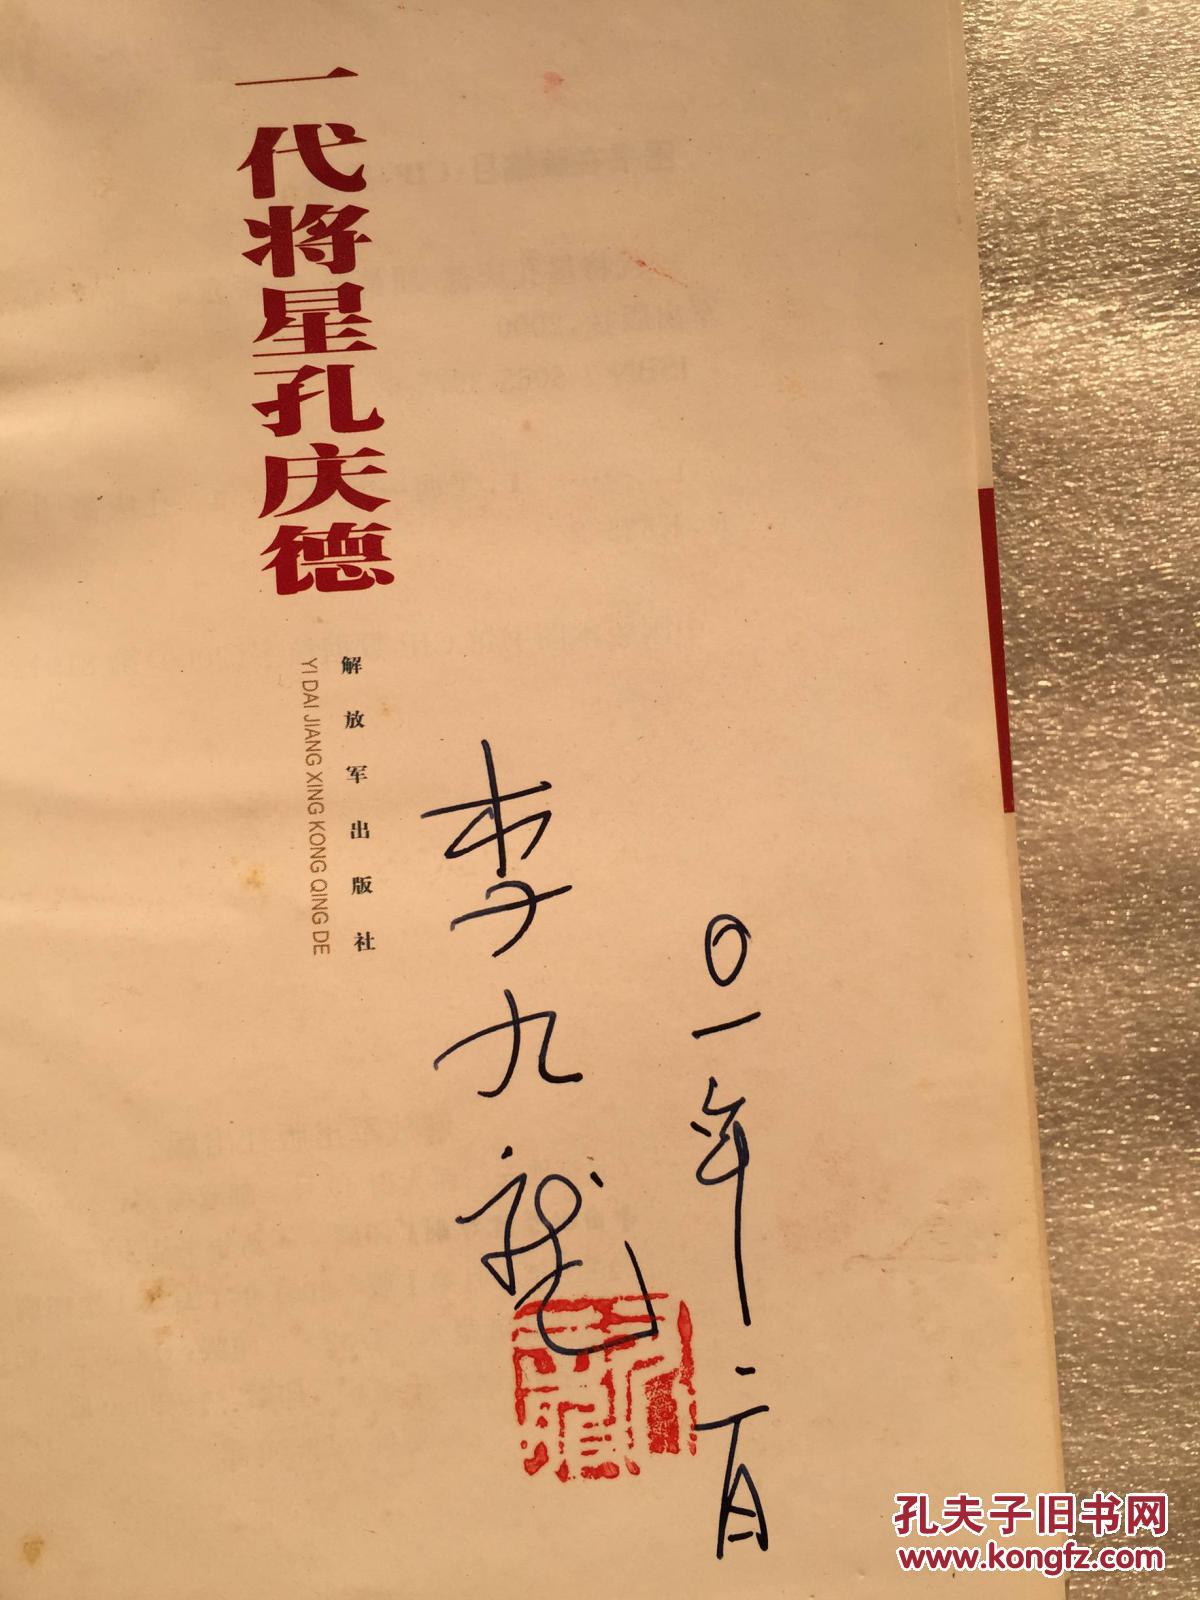 一代将星孔庆德
YI DAI JIANG XING KONG QING DE
解放军出版社
李九龙
〇一年二月
孔夫子旧书网
www.kongfz.com